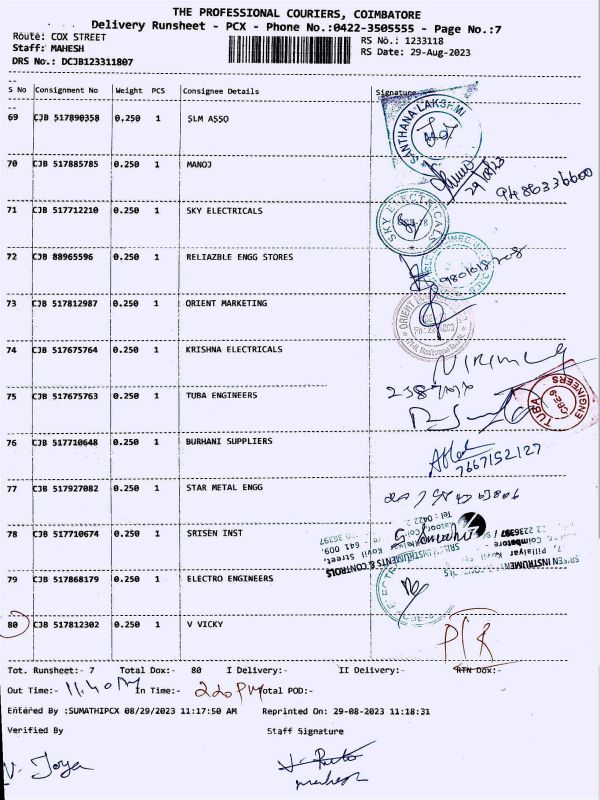 THE PROFESSIONAL COURIERS, COIMBATORE
Delivery Runsheet - PCX - Phone No.:0422-3505555 - Page No.:7
Route: COX STREET
RS No.: 1233118
Staff: MAHESH
RS Date: 29-Aug-2023
DRS No.: DCJB123311807
S No Consignment No Weight PCS Consignee Details Signature
69 CJB 517890358 0.250 1 SLM ASSO
SANTHANA LAKSHMI
29/08/23
70 CJB 517885785 0.250 1 MANOJ
9486336600
71 CJB 517712210 0.250 1 SKY ELECTRICALS
SKY ELECTRICALS
72 CJB 88965596 0.250 1 RELIAZBLE ENGG STORES
73 CJB 517812987 0.250 1 ORIENT MARKETING
74 CJB 517675764 0.250 1 KRISHNA ELECTRICALS
75 CJB 517675763 0.250 1 TUBA ENGINEERS
TUBA ENGINEERS
CBE-9
76 CJB 517710648 0.250 1 BURHANI SUPPLIERS
7667152127
77 CJB 517927082 0.250 1 STAR METAL ENGG
78 CJB 517710674 0.250 1 SRISEN INST
79 CJB 517868179 0.250 1 ELECTRO ENGINEERS
80 CJB 517812302 0.250 1 V VICKY
Tot. Runsheet:- 7 Total Dox:- 80 I Delivery:- II Delivery:- RTN Dox:-
Out Time:- 11.40 AM In Time:- 2.20 PM Total POD:-
Entered By :SUMATHIPCX 08/29/2023 11:17:50 AM Reprinted On: 29-08-2023 11:18:31
Verified By Staff Signature
mahesh